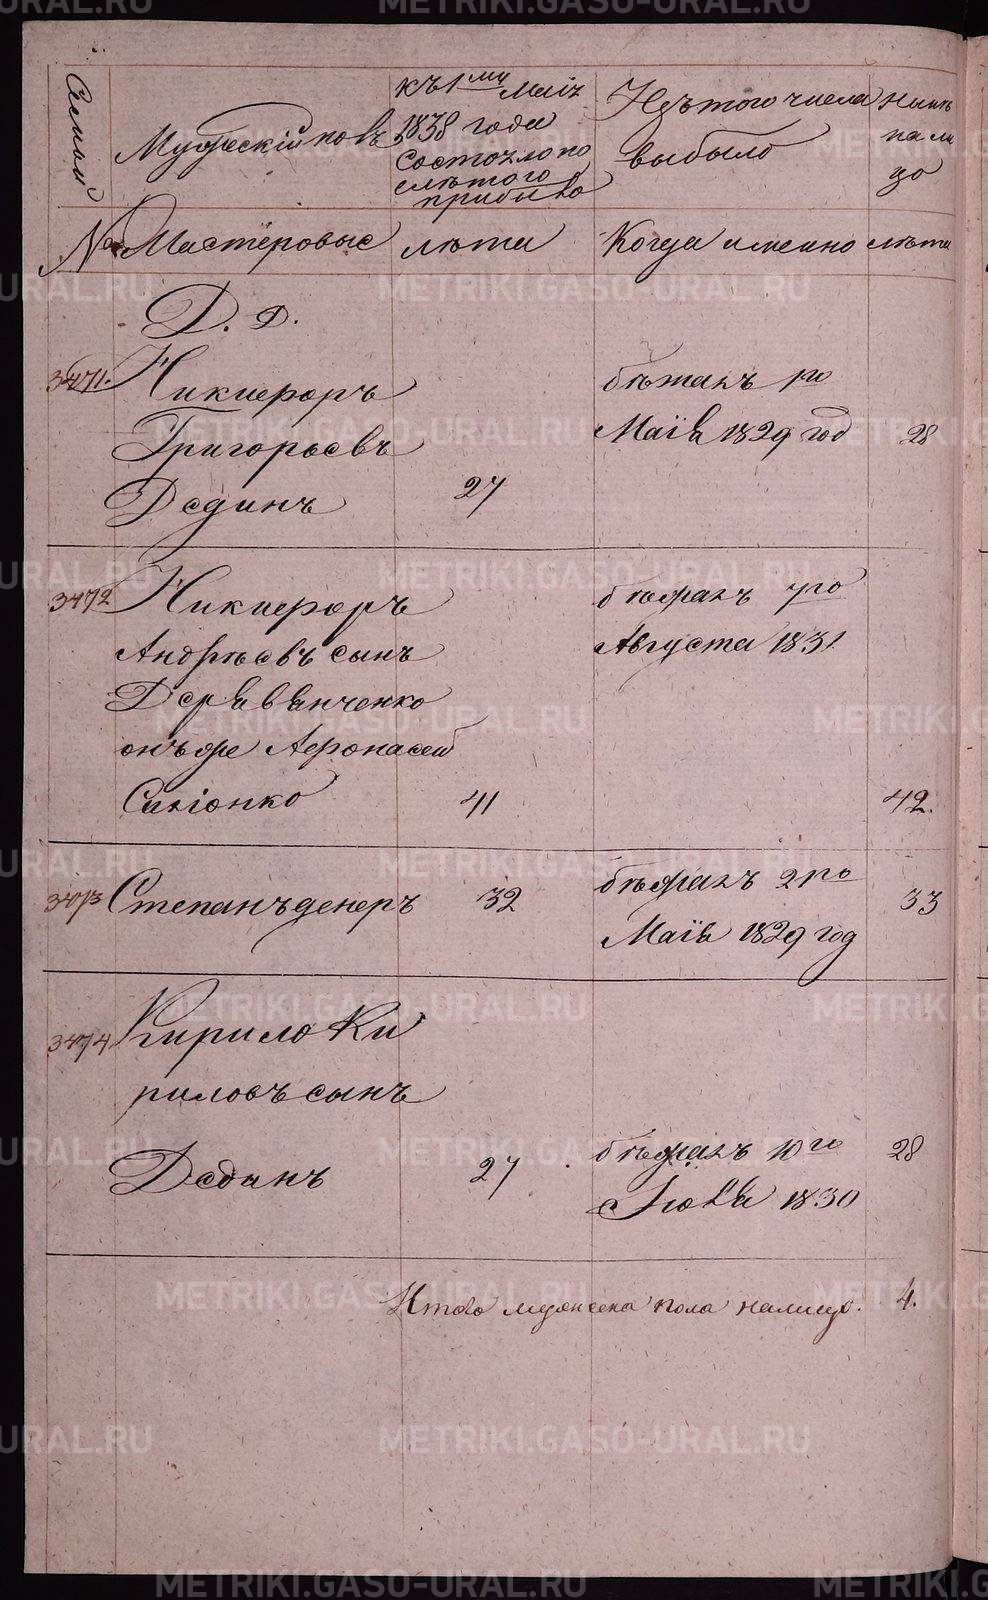 Семьи
Мужескій полъ
Къ 1му Маія
1838 года
состояло по
слѣ того
прибыло
Изъ того числа
выбыло
Нынѣ
на ли
цо
№ Мастеровые лѣта Когда именно лѣта
Д. Д.
3471. Никифоръ бѣжалъ 1го
Григорьевъ Маія 1829 год 28
Дединъ 27
3472 Никифоръ бѣжалъ 7го
Андрѣевъ сынъ Августа 1831
онъже Афонасей
41 42.
3473 Степанъ денеръ 32 бѣжалъ 2го 33
Маія 1829 год
3474 Кирило Ки
риловъ сынъ
Дединъ 27 бѣжалъ 10го 28
Іюля 1830
Итого мужеска пола налицо. 4.
METRIKI.GASO-URAL.RU